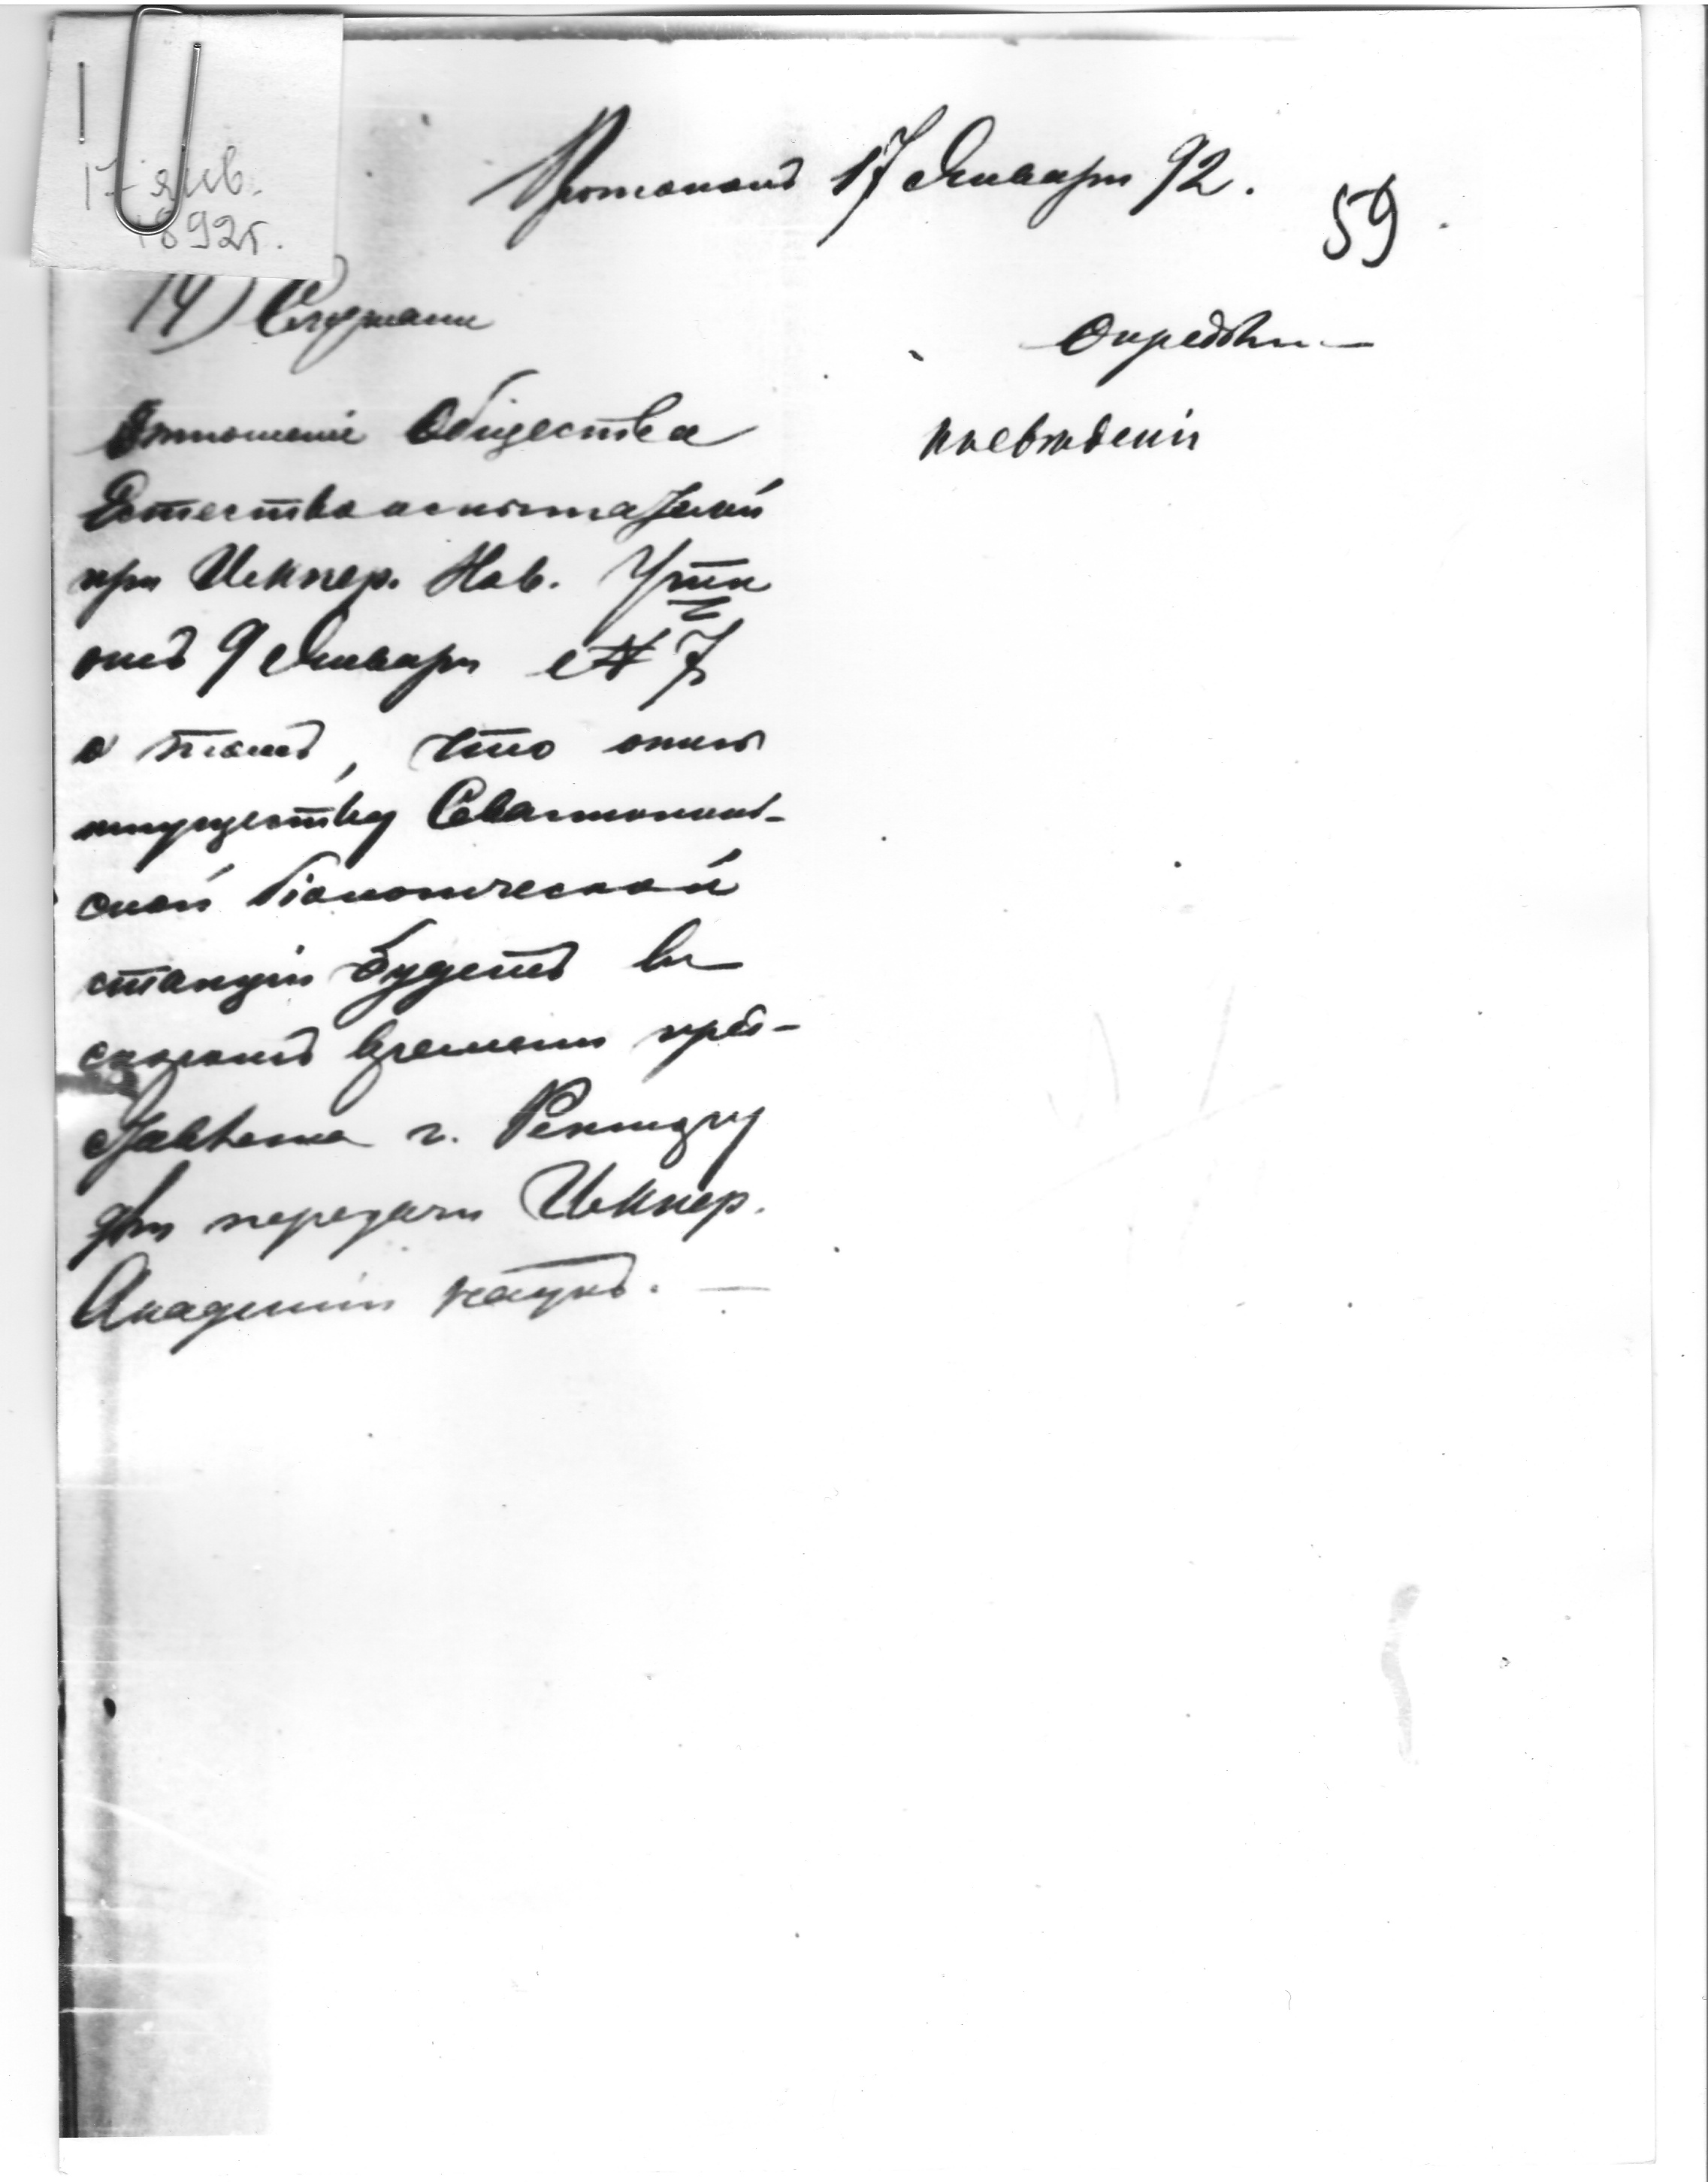 17 янв.
1892г.
Протоколъ 17 Января 92.
59
14) Слушали
Отношеніе Общества
Естествоиспытателей
при Импер. Нов. Ун-тѣ
отъ 9 Января № 7
о томъ, что опись
имуществу Севастополь-
ской біологической
станціи будетъ въ
скоромъ времени пред-
ставлена г. Ректору
для передачи Импер.
Академіи наукъ. —
Опредѣл. —
къ свѣдѣнію